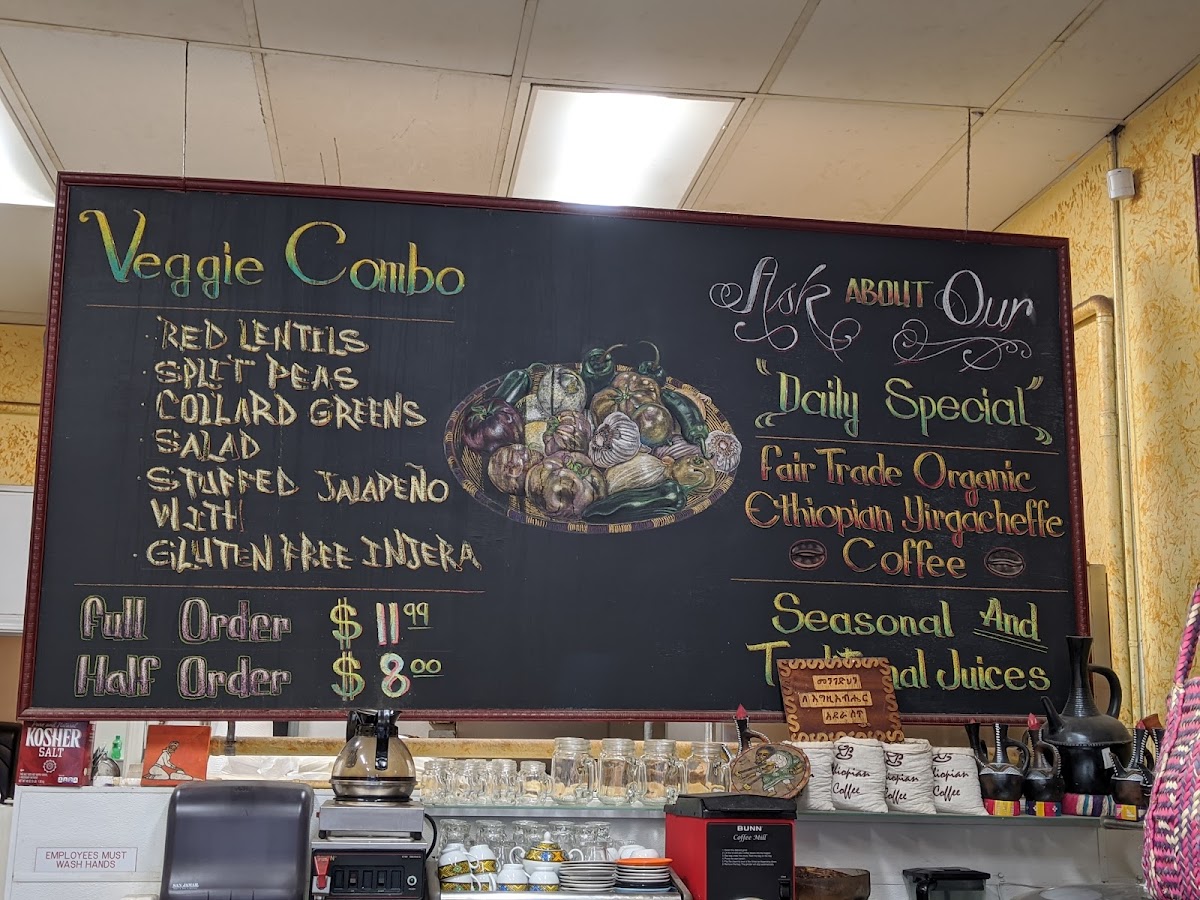 Veggie Combo
· RED LENTILS
· SPLIT PEAS
· COLLARD GREENS
· SALAD
· STUFFED JALAPEÑO
WITH
· GLUTEN FREE INJERA
Full Order $ 11 99
Half Order $ 8 00
Ask ABOUT Our
"Daily Special"
Fair Trade Organic
Ethiopian Yirgacheffe
Coffee
Seasonal And
T nal Juices
መንገድህን
ለ እግዚአብሔር
አደራ ስጥ
KOSHER
SALT
EMPLOYEES MUST
WASH HANDS
BUNN
Coffee Mill
hiopian
Coffee
Ethiopian
Coffee
Ethiopian
Coffee
Ethiopian
Coffee